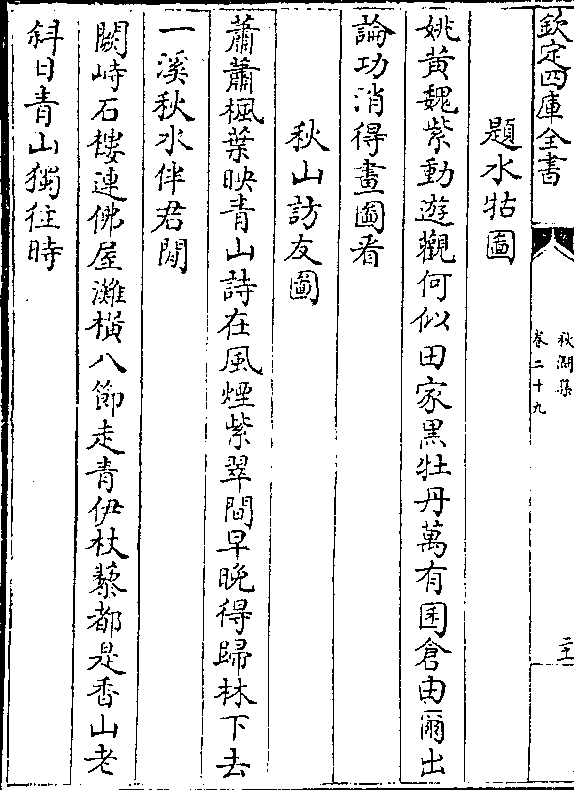 欽定四庫全書
秋澗集
卷二十九
題水牯圖
姚黃魏紫動遊觀何似田家黑牡丹萬有囷倉由爾出
論功消得畫圖看
秋山訪友圖
蕭蕭楓葉映青山詩在風煙紫翠間早晚得歸林下去
一溪秋水伴君閒
闕峙石樓連佛屋灘橫八節走青伊杖藜都是香山老
斜日青山獨往時